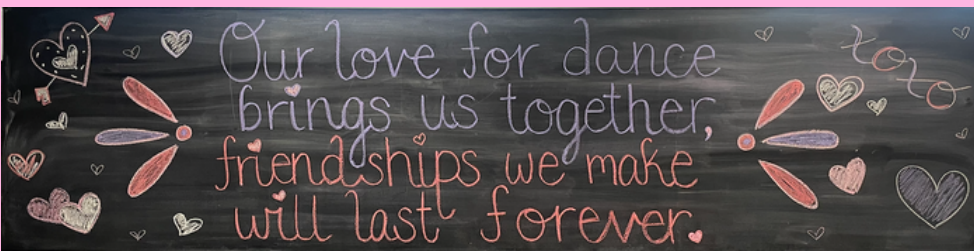 Our love for dance
xoxo
brings us together,
friendships we make
will last forever.